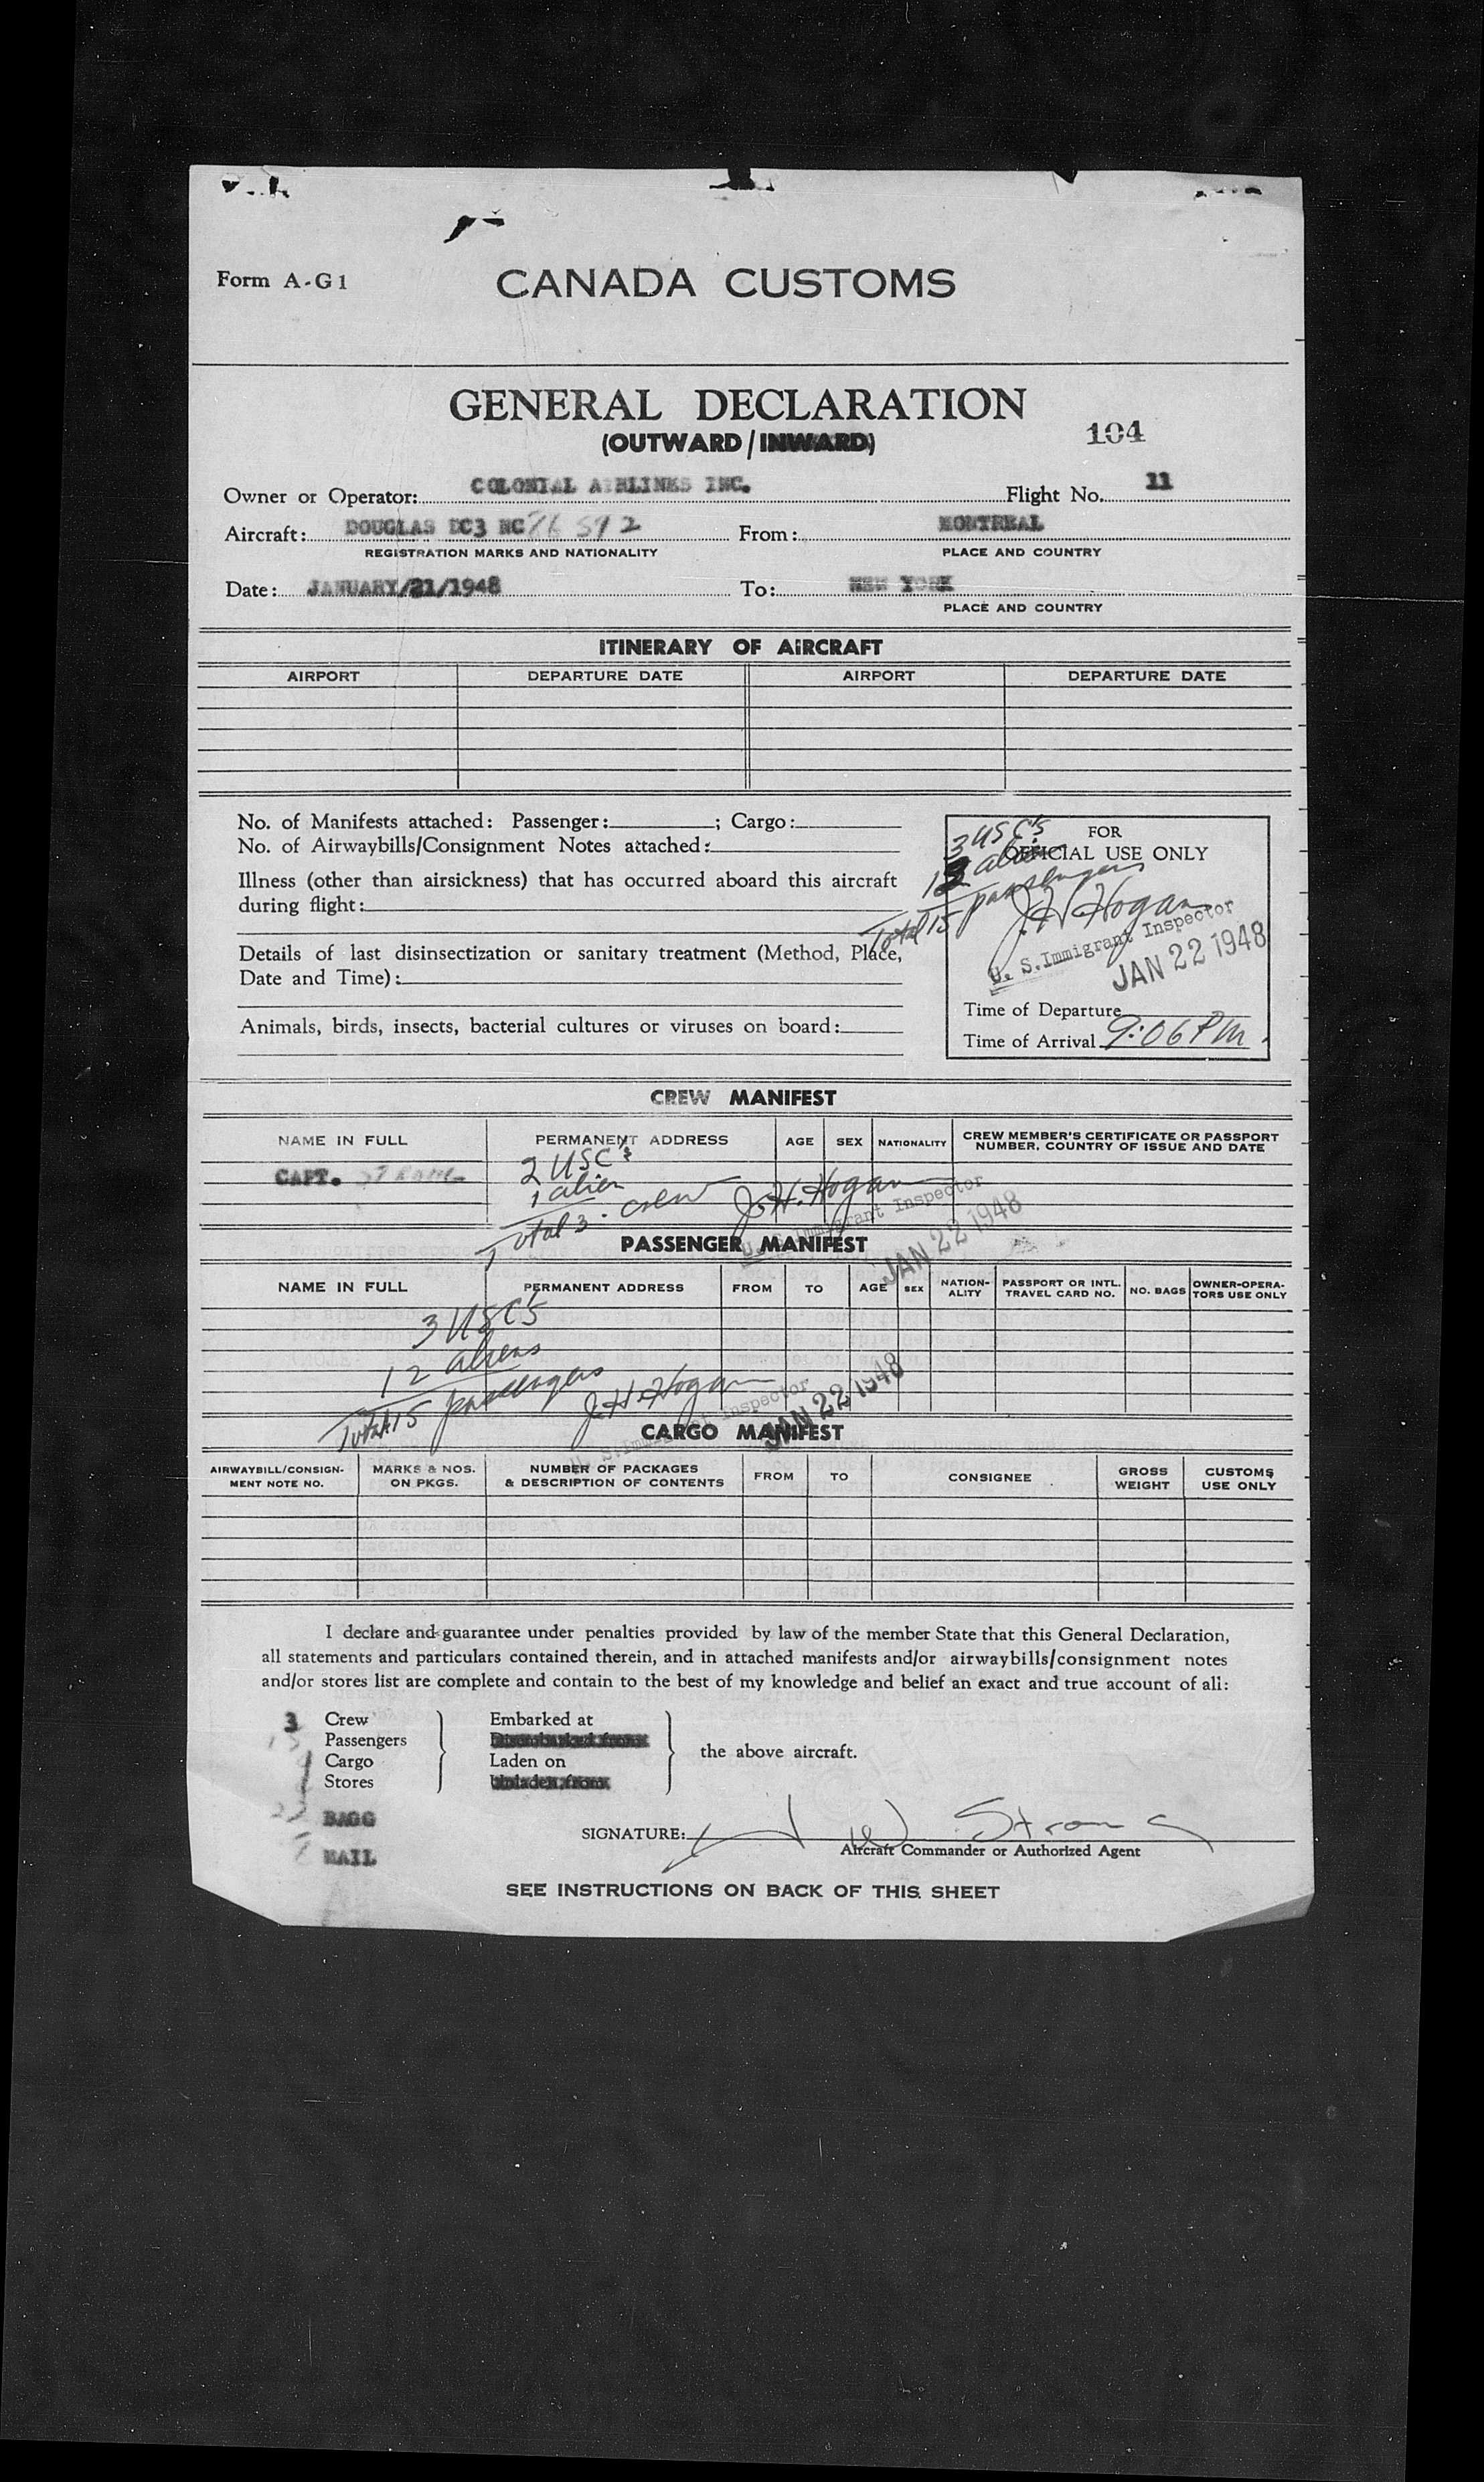 Form A-G1
CANADA CUSTOMS
GENERAL DECLARATION
(OUTWARD/INWARD)
104
Owner or Operator: COLONIAL AIRLINES INC.
Flight No. 11
Aircraft: DOUGLAS DC3 NC 86592
From: MONTREAL
REGISTRATION MARKS AND NATIONALITY
PLACE AND COUNTRY
Date: JANUARY/21/1948
To: NEW YORK
PLACE AND COUNTRY
ITINERARY OF AIRCRAFT
AIRPORT DEPARTURE DATE AIRPORT DEPARTURE DATE
No. of Manifests attached: Passenger: ; Cargo:
No. of Airwaybills/Consignment Notes attached:
Illness (other than airsickness) that has occurred aboard this aircraft
during flight:
Details of last disinsectization or sanitary treatment (Method, Place,
Date and Time):
Animals, birds, insects, bacterial cultures or viruses on board:
FOR
OFFICIAL USE ONLY
3 USC's
12 aliens
Total 15 passengers
J.H. Hogan
U. S. Immigrant Inspector
JAN 22 1948
Time of Departure
Time of Arrival 9:06 PM.
CREW MANIFEST
NAME IN FULL
PERMANENT ADDRESS
AGE
SEX
NATIONALITY
CREW MEMBER'S CERTIFICATE OR PASSPORT
NUMBER, COUNTRY OF ISSUE AND DATE
CAPT. STRONG
2 USC's
1 alien
Total 3 - crew
J.H. Hogan
U. S. Immigrant Inspector
JAN 22 1948
PASSENGER MANIFEST
NAME IN FULL
PERMANENT ADDRESS
FROM
TO
AGE
SEX
NATION-
ALITY
PASSPORT OR INTL.
TRAVEL CARD NO.
NO. BAGS
OWNER-OPERA-
TORS USE ONLY
3 USC's
12 aliens
Total 15 passengers
J.H. Hogan
U. S. Immigrant Inspector
JAN 22 1948
CARGO MANIFEST
AIRWAYBILL/CONSIGN-
MENT NOTE NO.
MARKS & NOS.
ON PKGS.
NUMBER OF PACKAGES
& DESCRIPTION OF CONTENTS
FROM
TO
CONSIGNEE
GROSS
WEIGHT
CUSTOMS
USE ONLY
I declare and guarantee under penalties provided by law of the member State that this General Declaration,
all statements and particulars contained therein, and in attached manifests and/or airwaybills/consignment notes
and/or stores list are complete and contain to the best of my knowledge and belief an exact and true account of all:
3 Crew
15 Passengers
Cargo
Stores
BAGG
MAIL
Embarked at
Disembarked from
Laden on
Unladen from
the above aircraft.
SIGNATURE: W Strong
Aircraft Commander or Authorized Agent
SEE INSTRUCTIONS ON BACK OF THIS SHEET